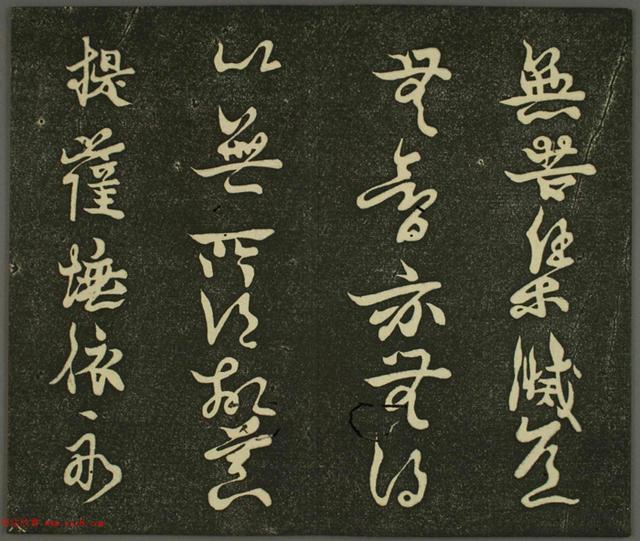 無苦集滅道
無智亦無得
以無所得故菩
提薩埵依般
www.yac8.com